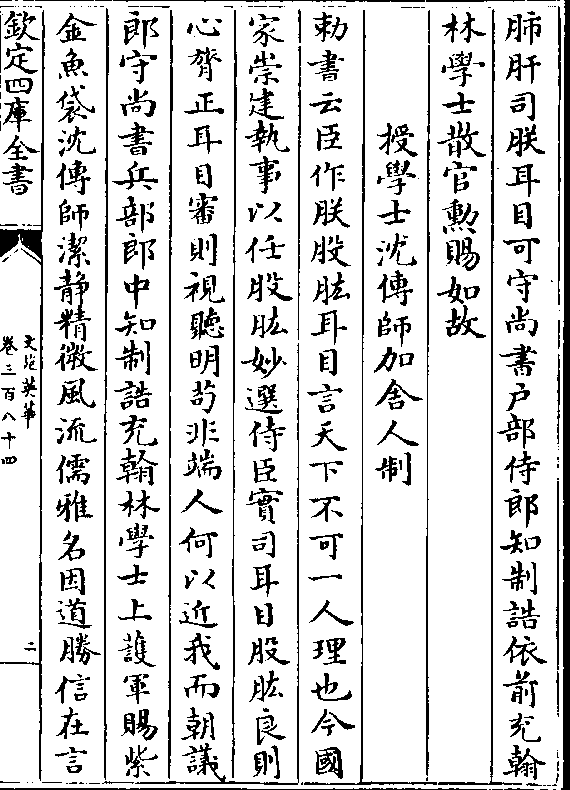 肺肝司朕耳目可守尚書户部侍郎知制誥依前充翰
林學士散官勲賜如故
授學士沈傳師加舎人制
勅書云臣作朕股肱耳目言天下不可一人理也今國
家崇建執事以任股肱妙選侍臣實司耳目股肱良則
心膂正耳目審則視聽明茍非端人何以近我而朝議
郎守尚書兵部郎中知制誥充翰林學士上護軍賜紫
金魚袋沈傳師潔静精微風流儒雅名因道勝信在言
欽定四庫全書
文苑英華
卷三百八十四
二